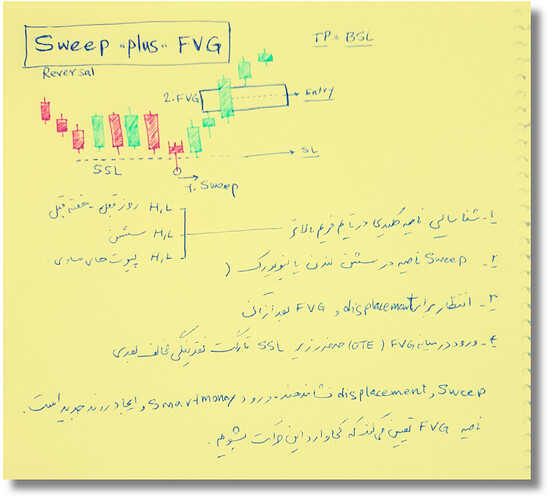 Sweep "plus" FVG
TP = BSL
Reversal
2. FVG
Entry
SSL
SL
1. Sweep
H,L روز قبل - هفته قبل
H,L سشن
H,L پیوت های
۱- شناسایی ناحیه کلیدی در تایم فریم بالاتر
۲- Sweep ناحیه در سشن لندن یا نیویورک
۳- انتظار برای displacement و FVG بعد از آن
۴- ورود در میانه FVG (OTE) حد ضرر زیر SSL تارگت نقدینگی مخالف بعدی
Sweep و displacement نشاندهنده ورود Smart money و ایجاد روند جدید است.
ناحیه FVG تعیین می‌کند که کجا وارد این حرکت بشویم.